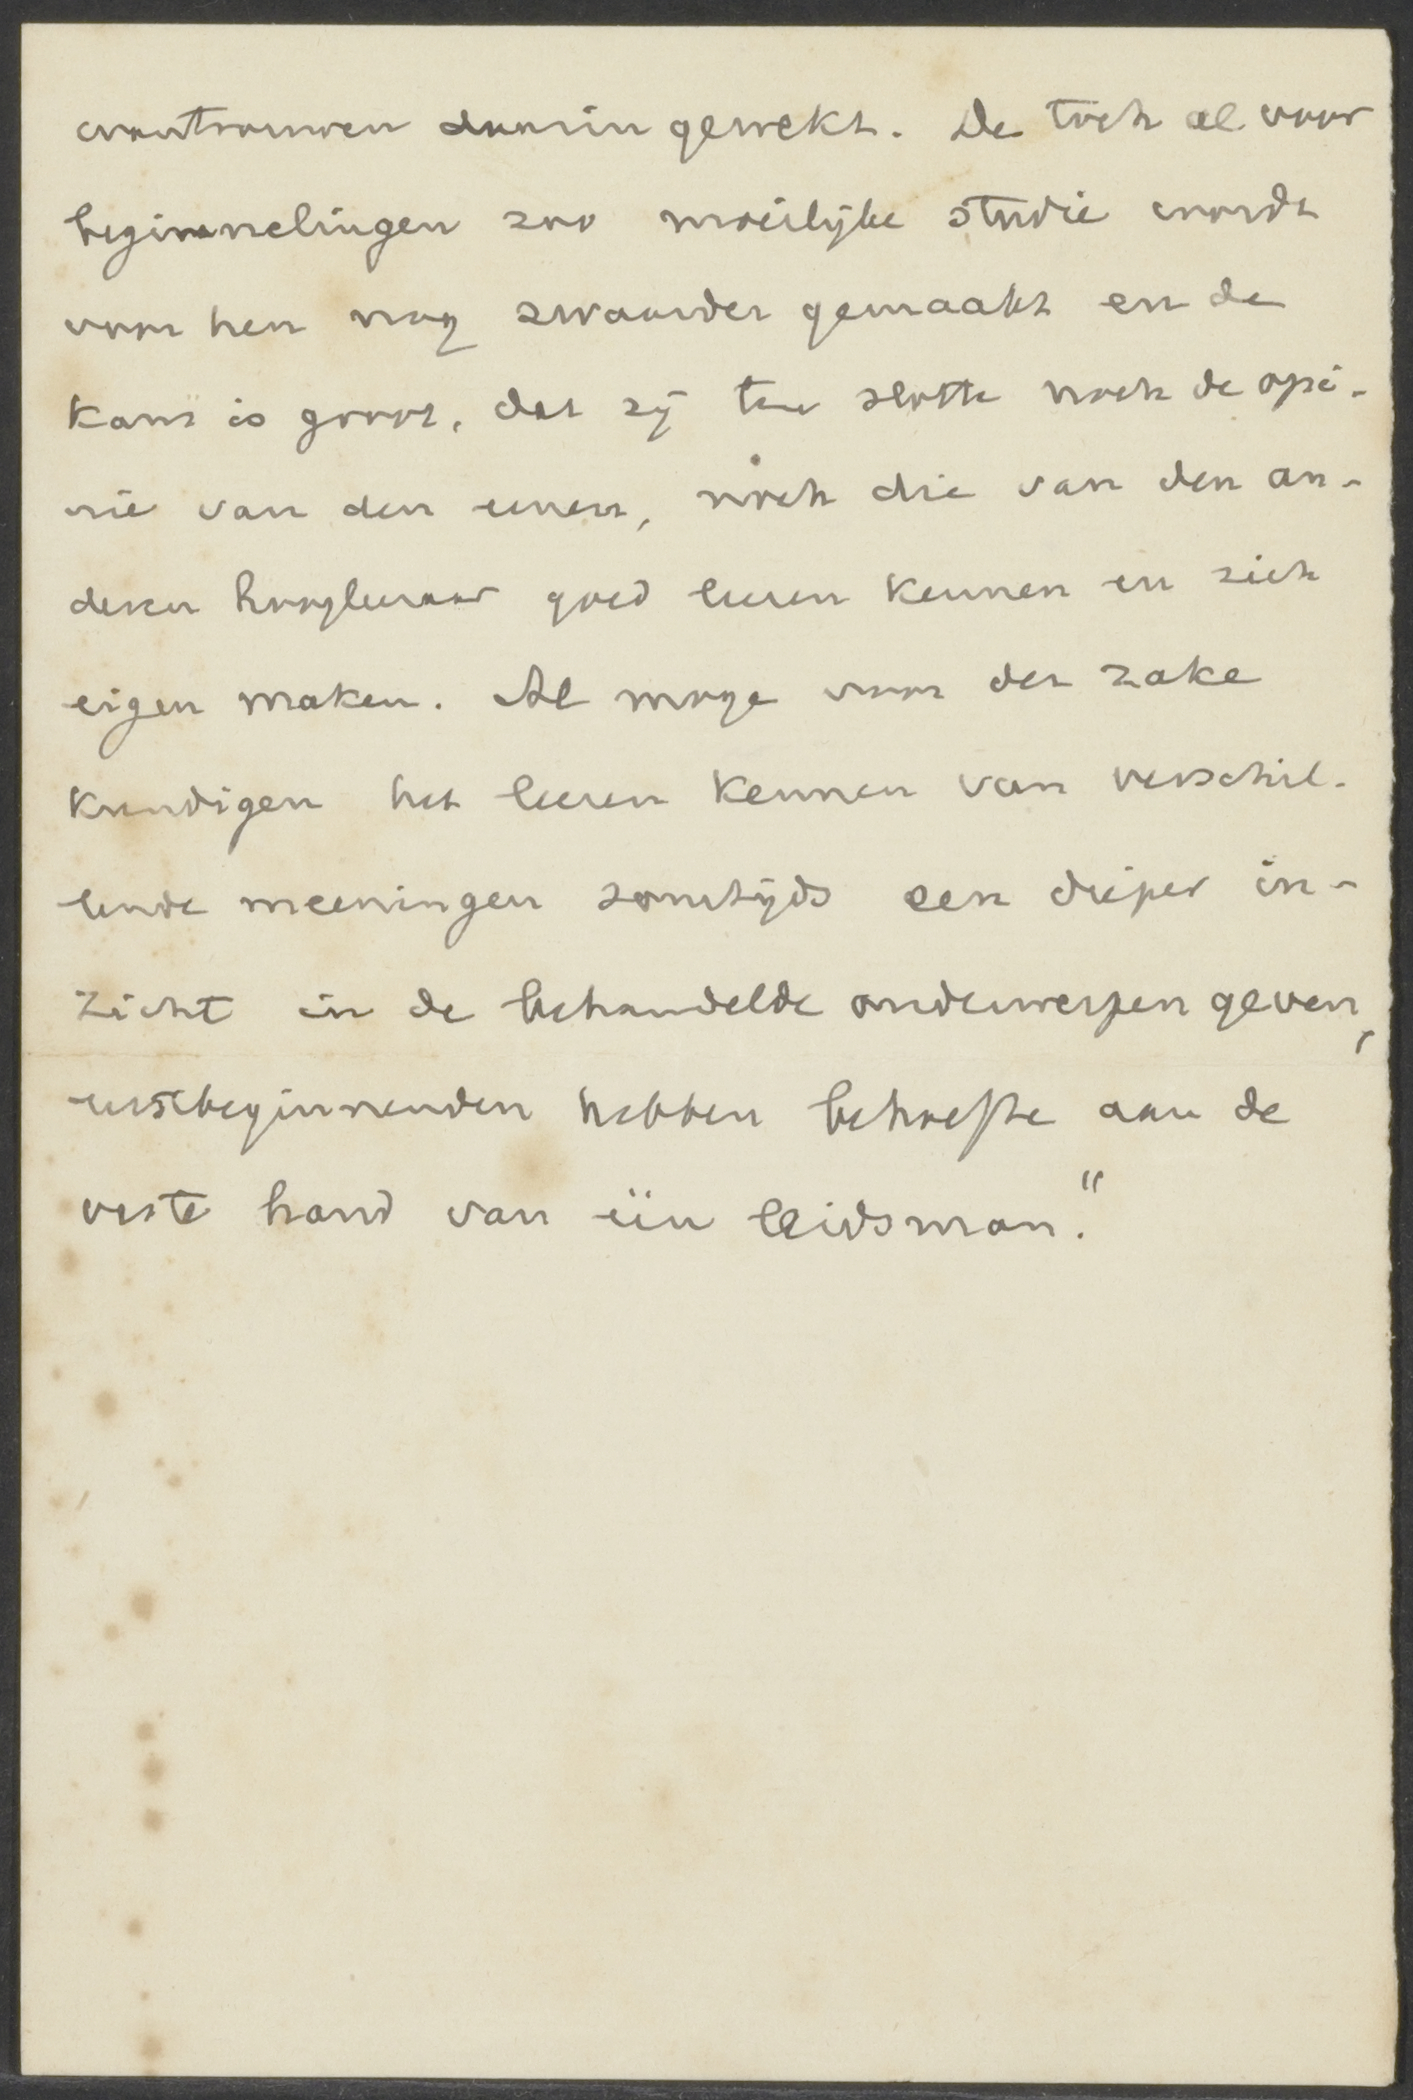 wantrouwen daarin gewekt. De toch al voor
beginnelingen zoo moeilijke studie wordt
voor hen nog zwaarder gemaakt en de
kans is groot, dat zij ten slotte noch de opi-
nie van den eenen, noch die van den an-
deren hoogleeraar goed leeren kennen en zich
eigen maken. Al moge voor der zake
kundigen het leeren kennen van verschil-
lende meeningen somtijds een dieper in-
zicht in de behandelde onderwerpen geven,
eerstbeginnenden hebben behoefte aan de
vaste hand van één leidsman."